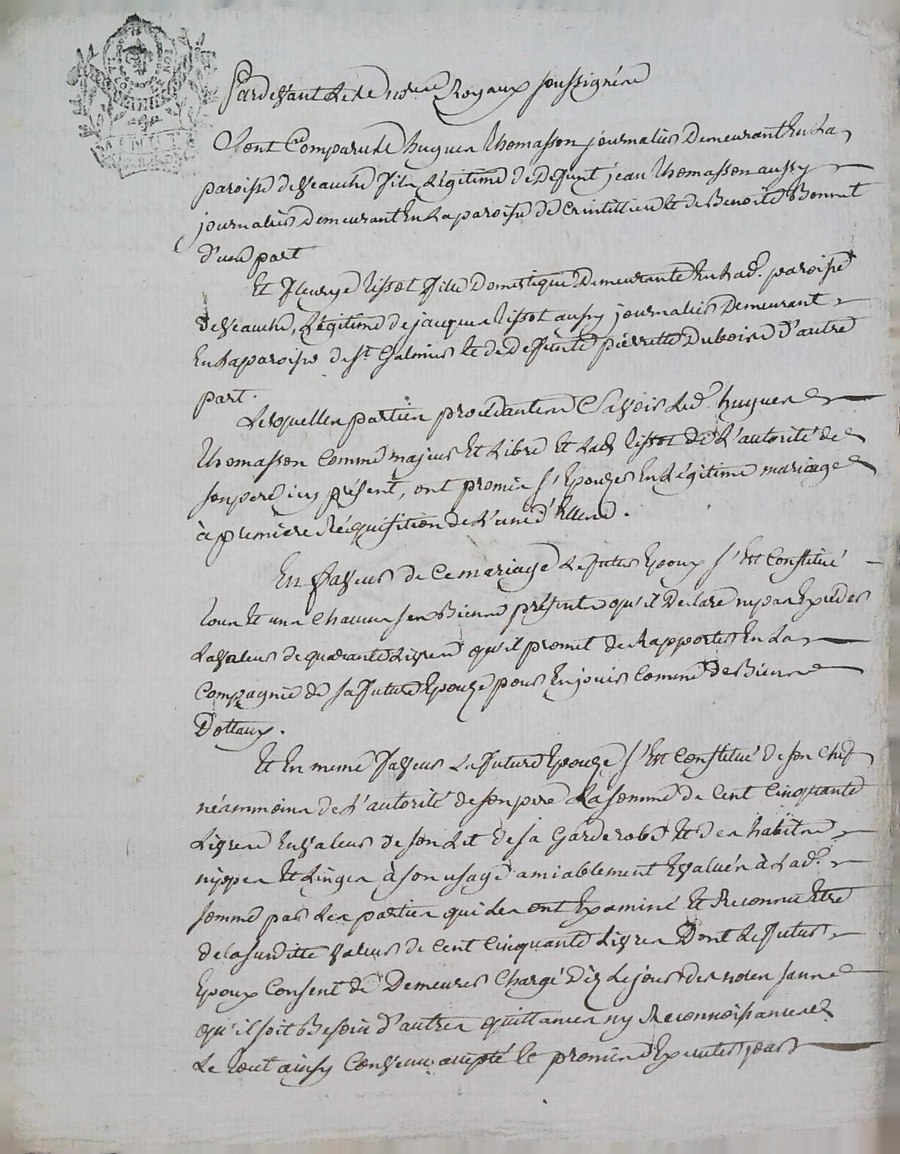 Pardevant Le Ne notre Royaux soussignéz
Sont Comparu Le hugues thomasson journalier Demeurant En La
paroisse de Veauche fils Légitime de Deffunt jean thomasson aussy
journalier Demeurant En La paroisse de Crintillieu et de Benoite Bonnet
d'une part
Et fleurye tissot fille Domestique Demeurante En Lade. paroisse
de Veauche, Légitime de jacques tissot aussy journalier Demeurant
En La paroisse de St. Galmier et de Deffunte pierrette Dubois d'autre
part.
Lesquelles parties procedantes Sçavoir Led. hugues
thomasson comme majeur Et Libre Et Lad. tissot de L'autorité de
son pere icy présent, ont promis s'Epouzer En Légitime mariage
à premiere Réquisition de L'un d'Eux.
En faveur de Ce mariage Le futur Epoux s'Est Constitué
tous Et uns Chacuns ses Biens présents qu'il Declare ny pas Excéder
La valeur de quarante Livres qu'il promet de Rapporter En La
Compagnie de sa future Epouze pour En jouir Comme de Biens
Dottaux.
Et En meme faveur La future Epouze s'Est Constitué de son Chef
néammoins de L'autorité de son pere La somme de Cent Cinquante
Livres En valeur de son Lit de sa Garderobe Et de ses habits
nippes Et Linges à son usage amiablement Evalués à Lade.
somme par Les parties qui Les ont Examiné Et Reconnu Etre
de La susditte valeur de Cent Cinquante Livres Dont Le futur
Epoux Consent de Demeurer Chargé Dez Le jour des noces sans
qu'il soit Besoin d'autres quittances ny Reconnoissances
Le tout ainsy Convenu accepté Et promis Executer par